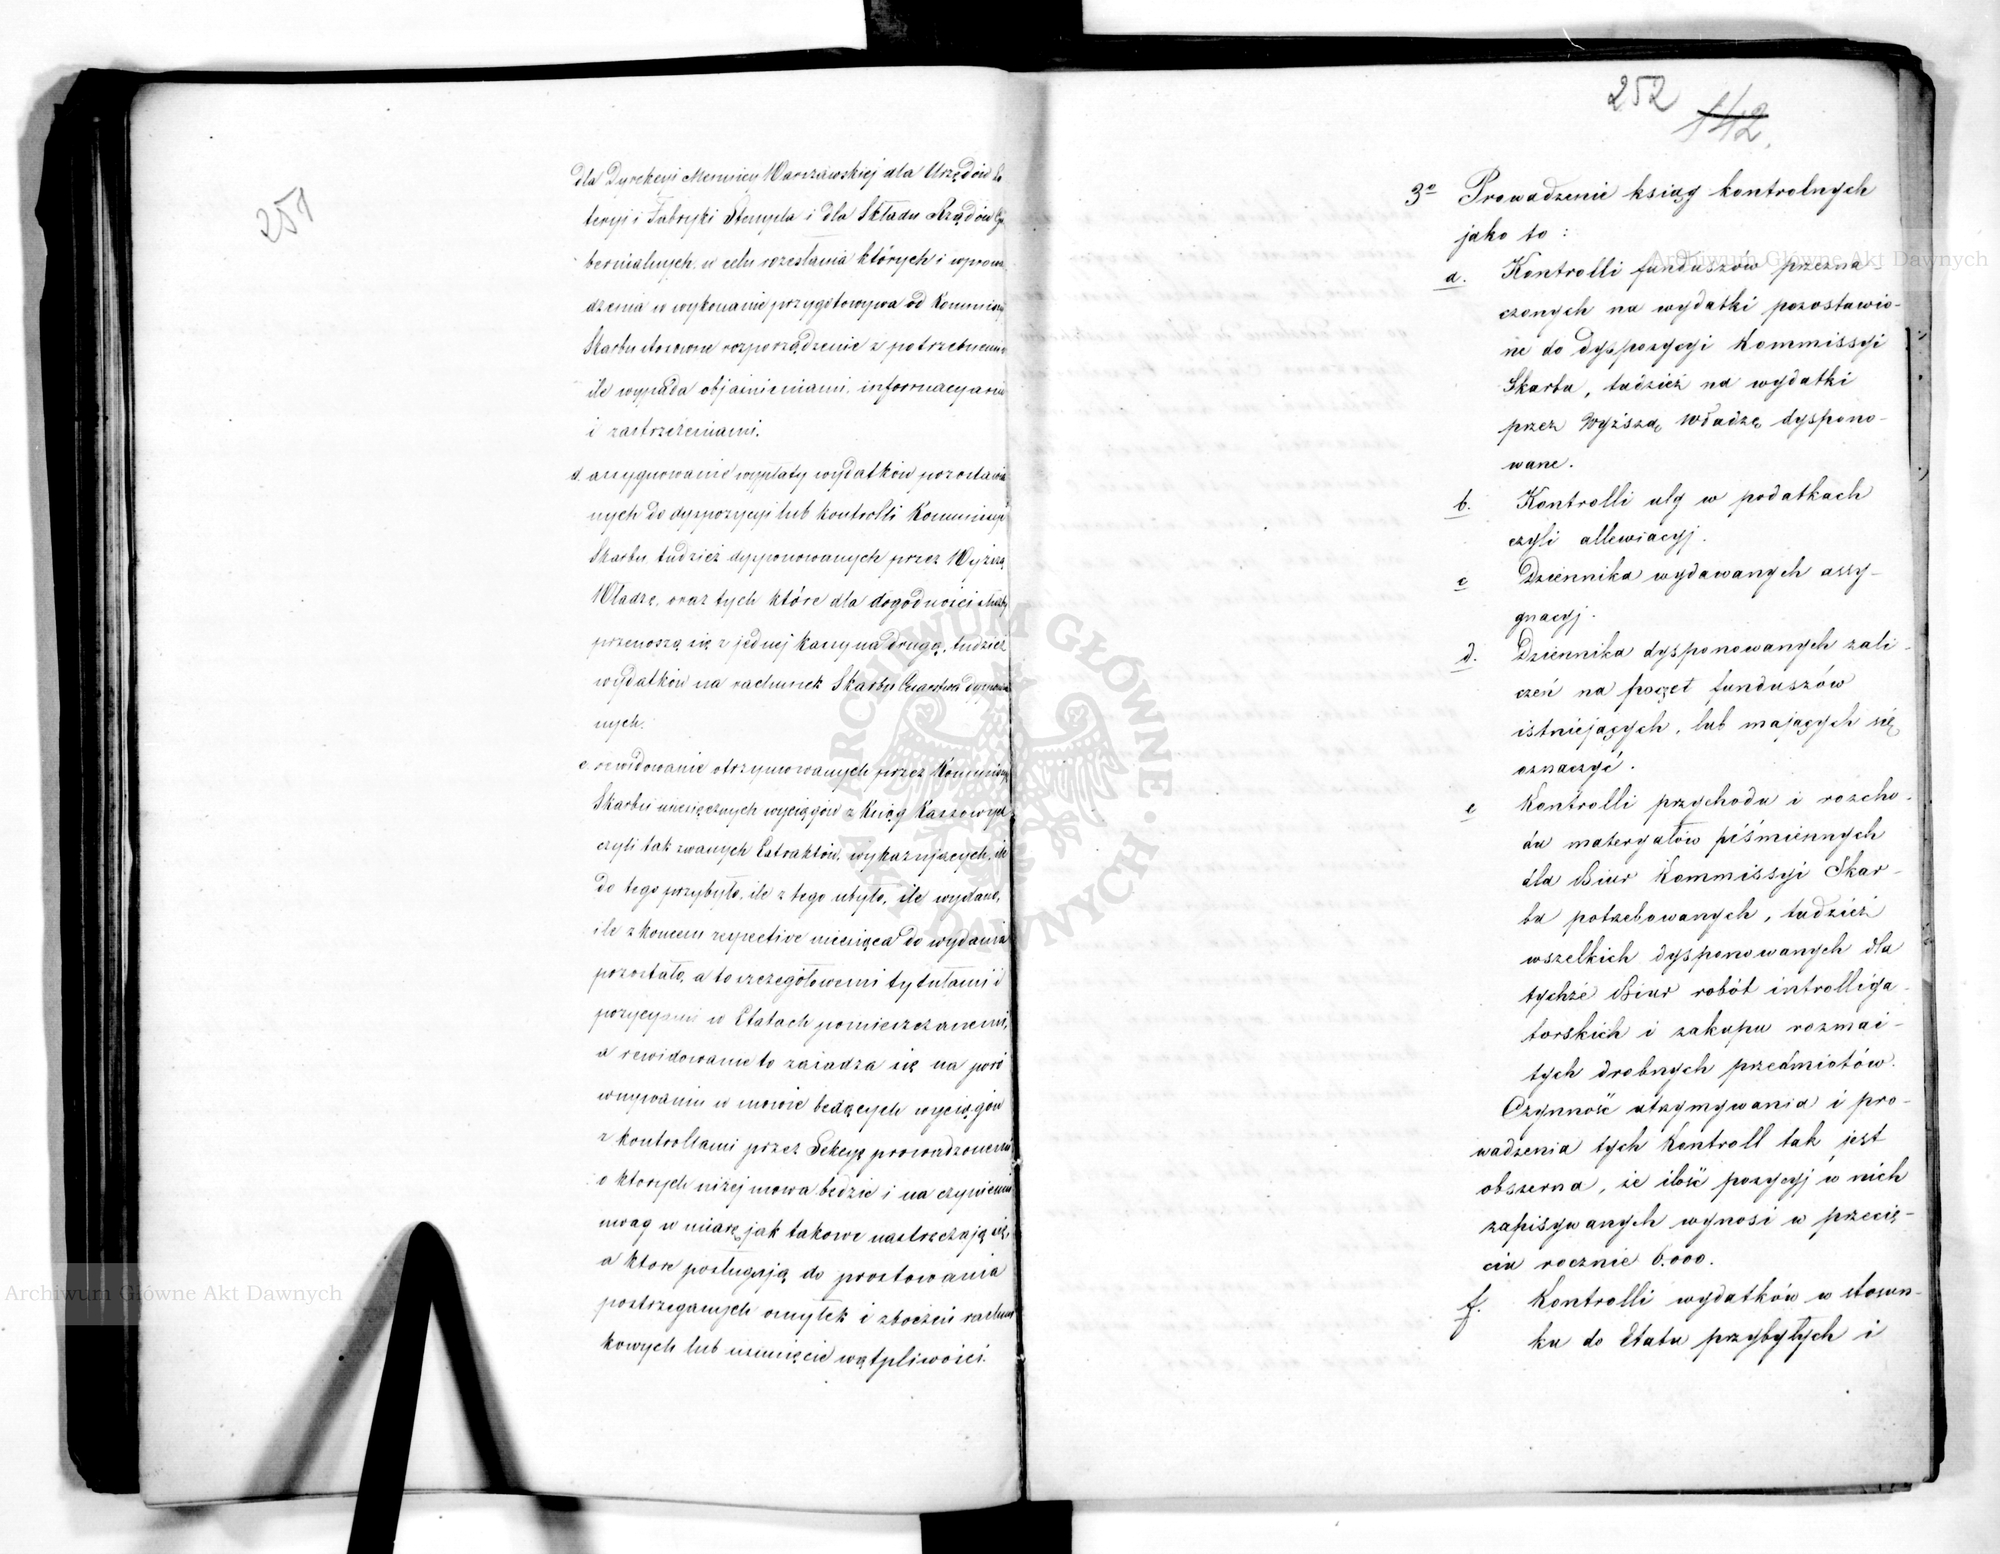 251
dla Dyrekcyi Mennicy Warszawskiej dla Urzędów Lo
teryi i Fabryki Stempla i dla Składu Rządów Gu
bernialnych, w celu rozesłania których i wprowa
dzenia w wykonanie przygotowywa od Kommissyi
Skarbu stosowne rozporządzenie z potrzebnemi
ile wypada objaśnieniami, informacyami
i zastrzeżeniami.
d. assygnowanie wypłaty wydatków pozostawio
nych do dyspozycyi lub kontrolli Kommissyi
Skarbu tudzież dysponowanych przez Wyższą
Władzę, oraz tych które dla dogodności służby
przenoszą się z jednej kassy na drugą, tudzież
wydatków na rachunek Skarbu Cesarstwa dysponowa
nych.
e. rewidowanie otrzymowanych przez Kommissyę
Skarbu miesięcznych wyciągów z Ksiąg Kassowych
czyli tak zwanych Extraktów, wykazujących, ile
do tego przybyło, ile z tego ubyło, ile wydano,
ile z końcem respective miesiąca do wydania
pozostało, a to szczegółowemi tytułami i
pozycyami w Etatach pomieszczanemi,
a rewidowanie to zasadza się na poró
wnywaniu w mowie będących wyciągów
z kontrollami przez Sekcyę prowadzonemi
o których niżej mowa będzie i na czynieniu
uwag w miarę jak takowe nastręczają się,
a które posługują do prostowania
postrzeganych omyłek i zboczeń rachun
kowych lub usunięcie wątpliwości.
252
142.
3e Prowadzenie ksiąg kontrolnych
jako to:
a. Kontrolli funduszów przezna-
czonych na wydatki pozostawio-
ne do dyspozycyi Kommissyi
Skarbu, tudzież na wydatki
przez Wyższą Władzę dyspono-
wane.
b. Kontrolli ulg w podatkach
czyli allewiacyj.
c Dziennika wydawanych assy-
gnacyj.
d. Dziennika dysponowanych zali-
czeń na poczet funduszów
istniejących, lub mających się
oznaczyć.
e Kontrolli przychodu i rozcho-
du materyałów piśmiennych
dla Biur Kommissyi Skar-
bu potrzebowanych, tudzież
wszelkich dysponowanych dla
tychże Biur robót introlliga-
torskich i zakupu rozmai-
tych drobnych przedmiotów.
Czynność utrzymywania i pro-
wadzenia tych Kontroll tak jest
obszerna, że ilość pozycyj w nich
zapisywanych wynosi w przecię-
ciu rocznie 6.000.
f. Kontrolli wydatków w stosun-
ku do Etatu przybyłych i
Archiwum Główne Akt Dawnych
Archiwum Główne Akt Dawnych
ARCHIWUM GŁÓWNE AKT DAWNYCH